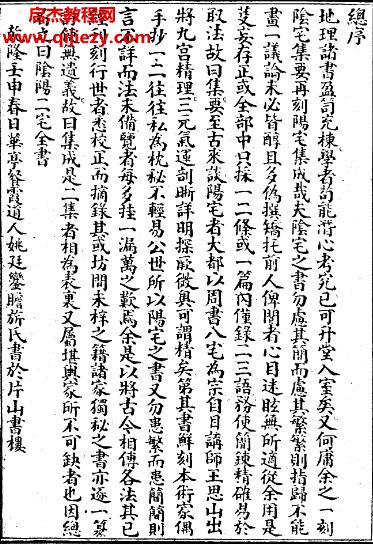 總序
地理諸書盈笥充棟學者苟能潛心考究已可升堂入室矣又何庸余之一刻
陰宅集要再刻陽宅集成哉夫陰宅之書勿慮其簡而慮其繁繁則指歸不能
畫一議論未必皆醇且多偽撰矯托前人俾閱者心目迷眩無所適從余用是
芟妄存正或全部中只採一二條或一篇內僅錄二三語務使簡鍊精確易於
取法故曰集要至古來談陽宅者大都以周書八宅為宗自日講師王思山出
將九宮精理三元氣運剖晰詳明探厥微奧可謂精矣第其書鮮刻本術家偶
手抄一二往往私為枕秘不輕易公世所以陽宅之書又勿患繁而患簡簡則
言詳而法未備覽者每多挂一漏萬之歎焉余是以將古今相傳各法其已
刻行世者悉校正而摘錄其或坊間未梓之籍諸家獨秘之書亦逐一纂
無遺義故曰集成是二集者相為表裏又屬堪輿家所不可缺者也因總
曰陰陽二宅全書
乾隆壬申春日華亭餐霞道人姚廷鑾瞻旂氏書於片山書樓
杰教程网